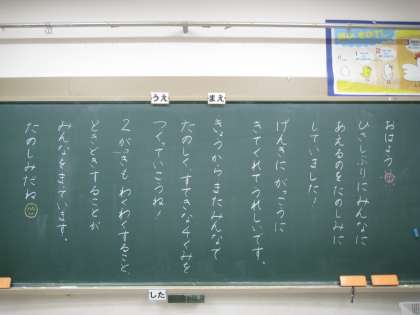 おはよう
ひさしぶりにみんなに
あえるのをたのしみに
していました!
げんきにがっこうに
きてくれてうれしいです。
きょうからまたみんなで
たのしくすてきな4くみを
つくっていこうね!
2がっきも わくわくすること、
どきどきすることが
みんなをまっています。
たのしみだね
まえ
うえ
した